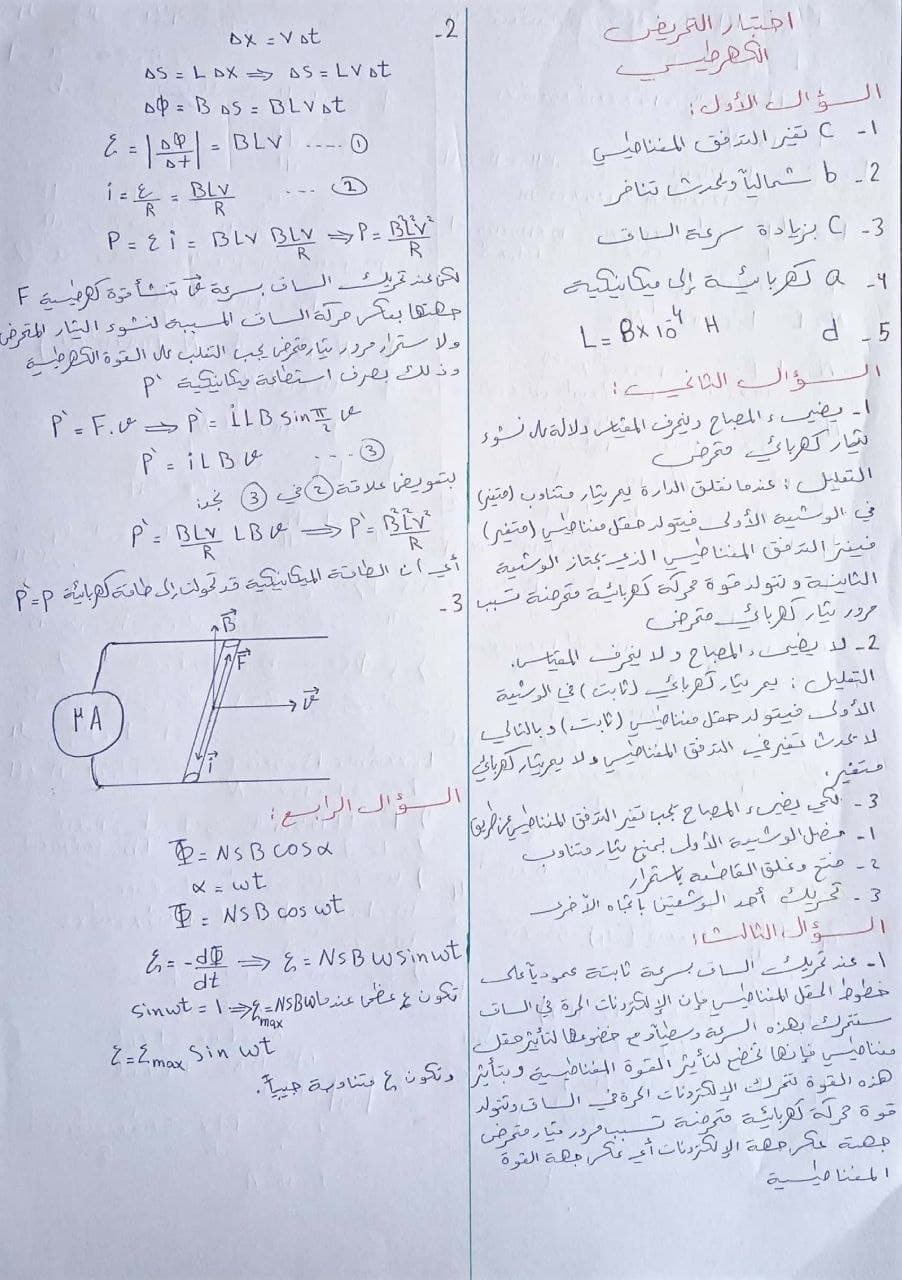 اختبار التحريض
الكهرطيسي
السؤال الأول:
1- C تغير التدفق المغناطيسي
2- b شمالياً ويحدث تنافر
3- C بزيادة سرعة الساق
4- a كهربائية إلى ميكانيكية
5- d L = 8×10⁻⁴ H
السؤال الثاني:
1- يضيء المصباح وينحرف المقياس دلالة على نشوء
تيار كهربائي متحرض
التعليل: عندما نغلق الدارة يمر تيار متناوب (متغير)
في الوشيعة الأولى فيتولد حقل مغناطيسي (متغير)
فيتغير التدفق المغناطيسي الذي يجتاز الوشيعة
الثانية وتتولد قوة محركة كهربائية متحرضة تسبب
مرور تيار كهربائي متحرض
2- لا يضيء المصباح ولا ينحرف المقياس.
التعليل: يمر تيار كهربائي (ثابت) في الوشيعة
الأولى فيتولد حقل مغناطيسي (ثابت) وبالتالي
لا يحدث تغير في التدفق المغناطيسي ولا يمر تيار كهربائي
متغير.
3- لكي يضيء المصباح يجب تغير التدفق المغناطيسي عن طريق
1- نصل الوشيعة الأولى بمنبع تيار متناوب
2- فتح وغلق القاطعة باستمرار
3- تحريك أحد الوشيعتين باتجاه الأخرى
السؤال الثالث:
1- عند تحريك الساق بسرعة ثابتة عمودياً على
خطوط الحقل المغناطيسي فإن الإلكترونات الحرة في الساق
ستتحرك بهذه السرعة وسطياً ومع خضوعها لتأثير حقل
مغناطيسي فإنها تخضع لتأثير القوة المغناطيسية وبتأثير
هذه القوة تتحرك الإلكترونات الحرة في الساق وتتولد
قوة محركة كهربائية متحرضة تسبب مرور تيار متحرض
جهته عكس جهة الإلكترونات أي عكس جهة القوة
المغناطيسية
2- Δx = v Δt
ΔS = L Δx ⟹ ΔS = L v Δt
ΔΦ = B ΔS = B L v Δt
Ɛ = |ΔΦ/Δt| = B L v ..... ①
i = Ɛ/R = BLv/R ... ②
P = Ɛ i = BLv BLv/R ⟹ P = B²L²v²/R
لكن عند تحريك الساق بسرعة v⃗ تنشأ قوة كهرطيسية F
جهتها بعكس حركة الساق المسببة لنشوء التيار المتحرض
ولاستمرار مرور تيار متحرض يجب التغلب على القوة الكهرطيسية
وذلك بصرف استطاعة ميكانيكية P`
P` = F.v ⟹ P` = i L B sin π/2 v
P` = i L B v ... ③
بتعويض علاقة ② في ③ نجد:
P` = BLv/R L B v ⟹ P` = B²L²v²/R
أي أن الطاقة الميكانيكية قد تحولت إلى طاقة كهربائية P`=P
3-
B⃗
F⃗
v⃗
μA
i⃗
السؤال الرابع:
Φ = NsB cos α
α = ωt
Φ = NSB cos ωt
Ɛ = -dΦ/dt ⟹ Ɛ = NsB ω sin ωt
تكون Ɛ عظمى عندما sin ωt = 1 ⟹ Ɛmax = NSBω
Ɛ = Ɛmax Sin ωt
وتكون Ɛ متناوبة جيبياً.